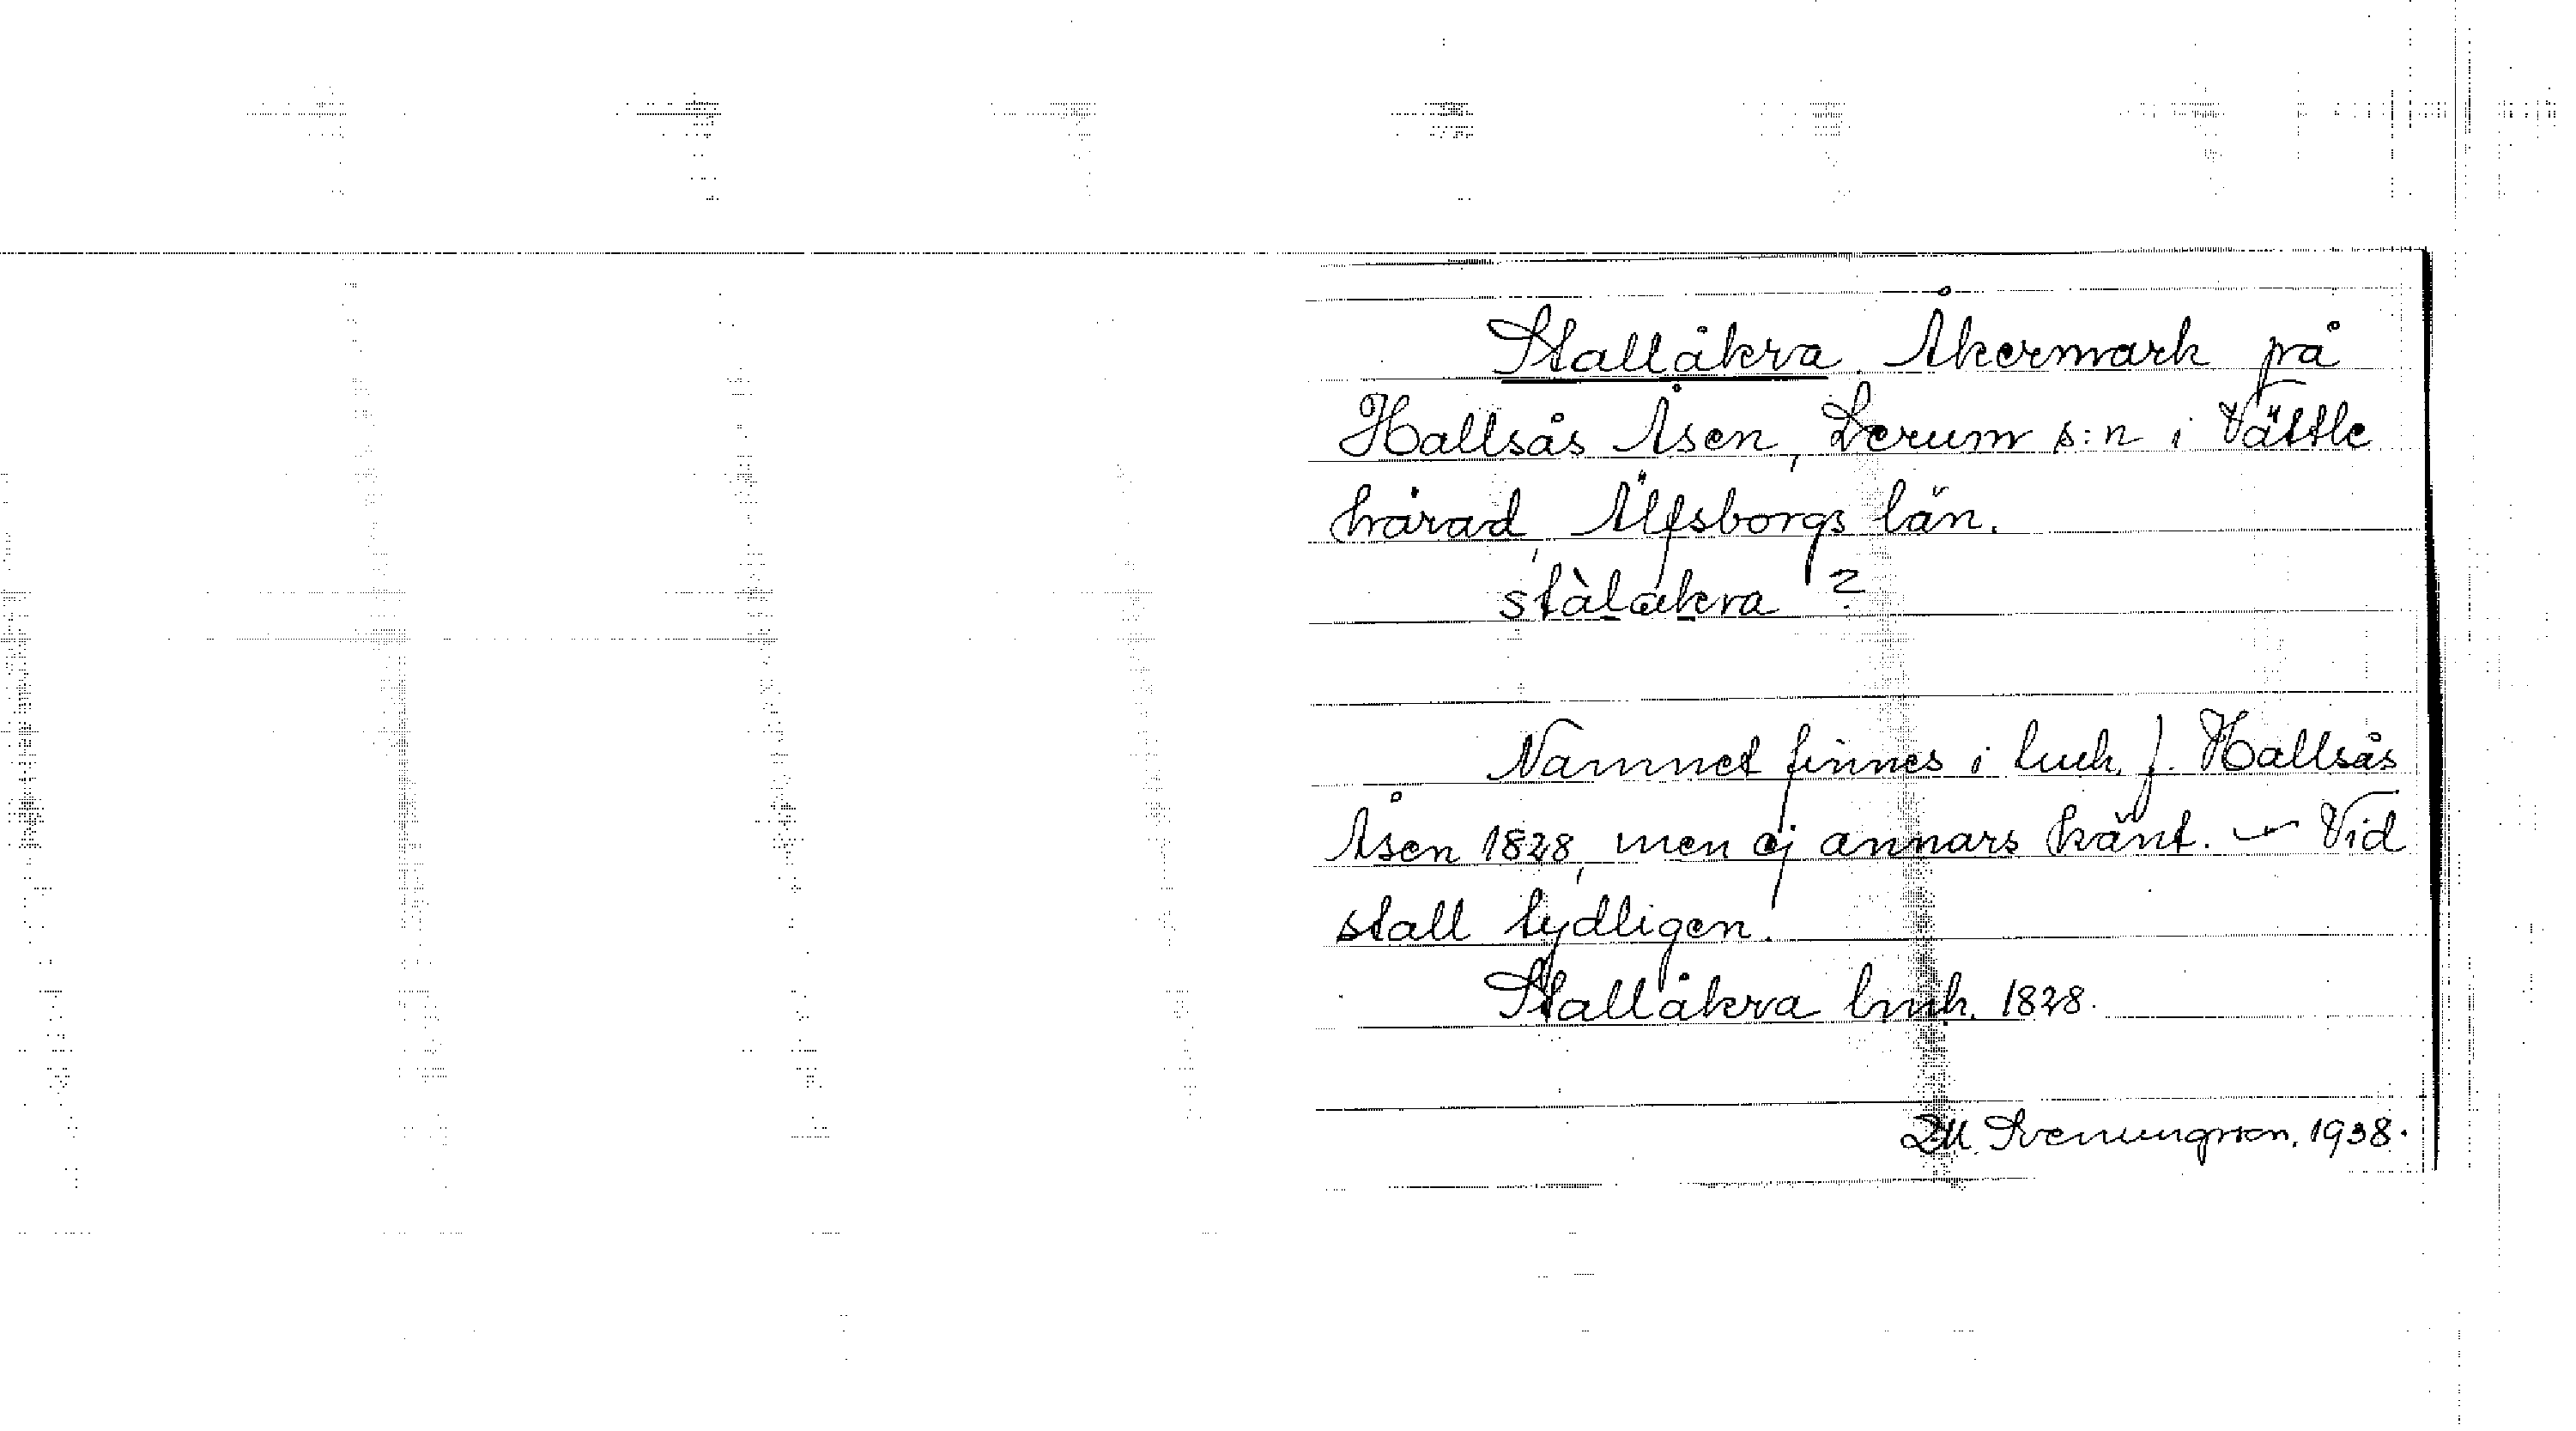 Stallåkra. Åkermark på
Hallsås Åsen, Lerum s:n i Vättle
härad, Älfsborgs län.
stàlåkra ?
Namnet finnes i luk. f. Hallsås
Åsen 1828, men ej annars känt. – Vid
stall tydligen.
Stallåkra luk. 1828.
Svenungsson. 1938.